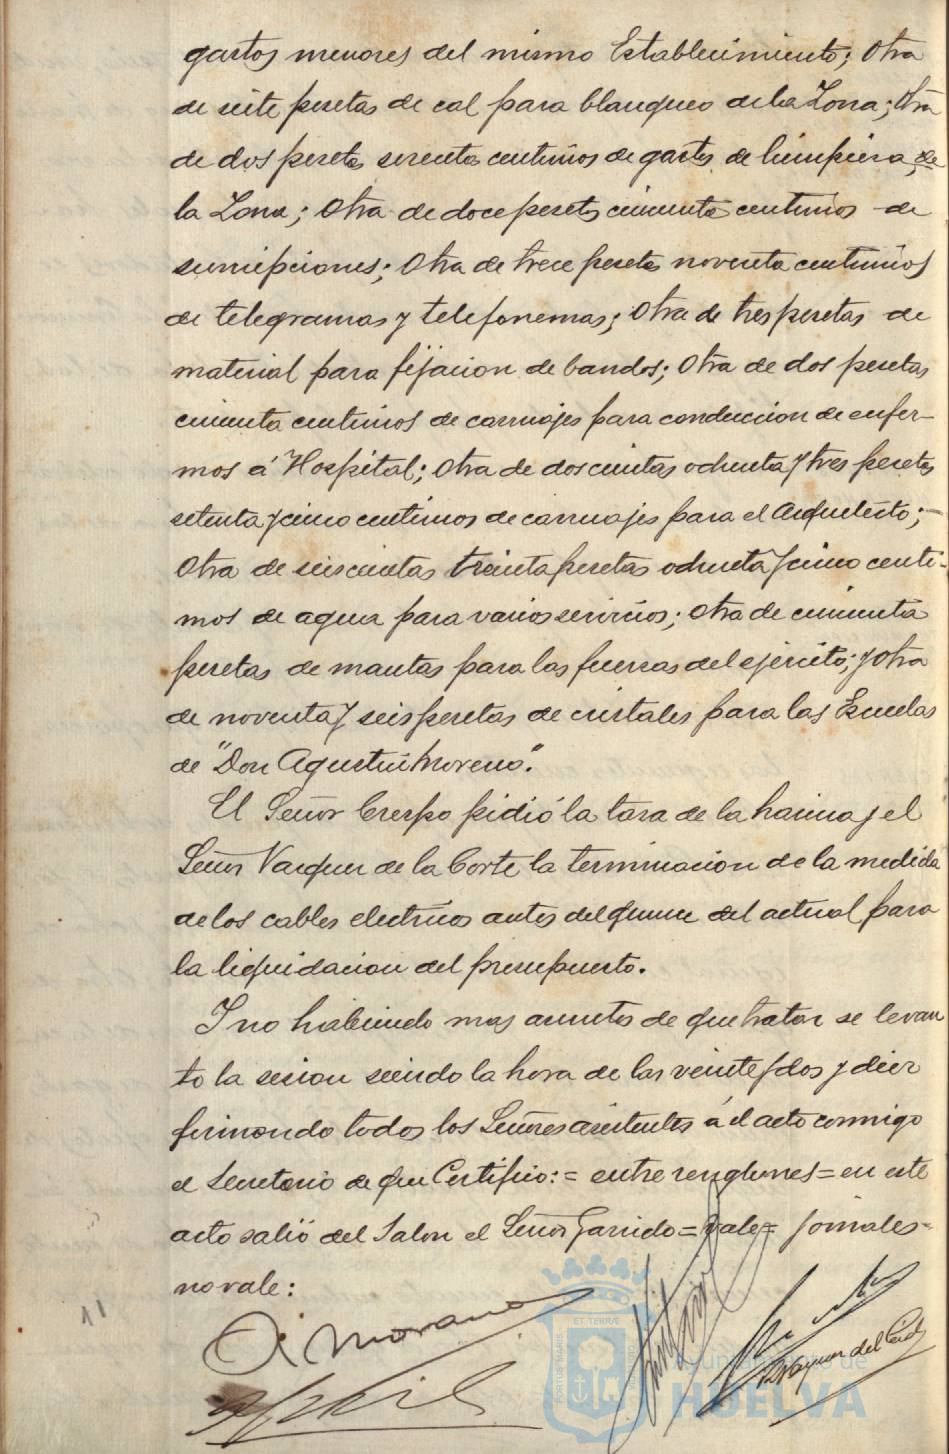 gastos menores del mismo Establecimiento; Otra
de siete pesetas de cal para blanqueo de la Zona; Otra
de dos pesetas sesenta centimos de gastos de limpieza de
la Zona; Otra de doce pesetas cincuenta centimos de
suscripciones; Otra de trece pesetas noventa centimos
de telegramas y telefonemas; Otra de tres pesetas de
material para fijacion de bandos; Otra de dos pesetas
cincuenta centimos de carruajes para conduccion de enfer-
mos á Hospital; Otra de doscientas ochenta y tres pesetas
setenta y cinco centimos de carruajes para el Arquitecto;-
Otra de seiscientas treinta pesetas ochenta y cinco centi-
mos de agua para varios servicios; Otra de cincuenta
pesetas de mantas para las fuerzas del ejército; y otra
de noventa y seis pesetas de cristales para las Escuelas
de "Don Agustin Moreno".
El Señor Crespo pidió la tasa de la harina y el
Señor Vazquez de la Corte la terminacion de la medida
de los cables electricos antes del quince del actual para
la liquidacion del presupuesto.
Y no habiendo mas asuntos de que tratar se levan
to la sesion siendo la hora de las veinte y dos y diez
firmando todos los Señores asistentes á el acto conmigo
el Secretario de que Certifico:= entre renglones= en este
acto salió del Salon el Señor Garrido= vale= jornales=
no vale:
A. Morano
Vazquez del Cid
11
Ayuntamiento de
HUELVA
PORTUS MARIS
ET TERRÆ